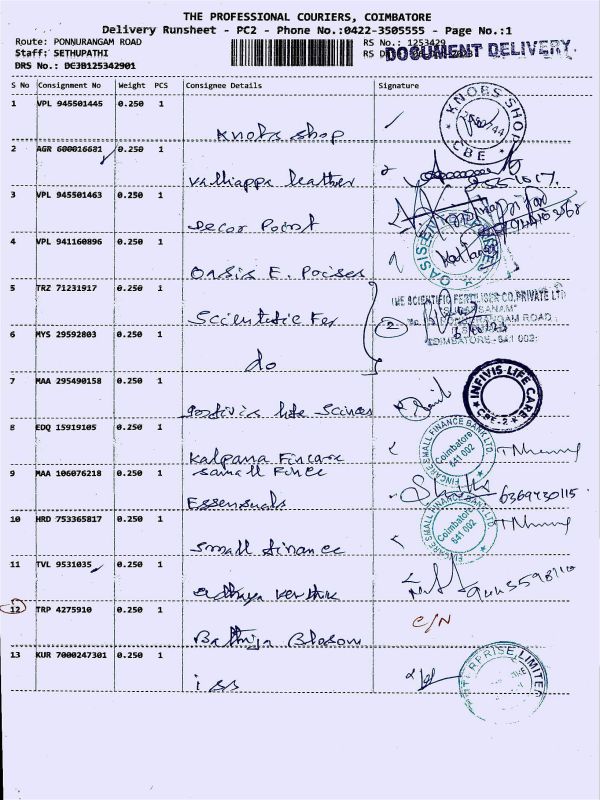 THE PROFESSIONAL COURIERS, COIMBATORE
Delivery Runsheet - PC2 - Phone No.:0422-3505555 - Page No.:1
Route: PONNURANGAM ROAD
RS No.: 1253429
Staff: SETHUPATHI
RS D
DOCUMENT DELIVERY.
DRS No.: DCJB125342901
S No Consignment No Weight PCS Consignee Details Signature
1 VPL 945501445 0.250 1
Knobs shop
KNOBS SHOP
CBE
2 AGR 600016681 0.250 1
Valliappa leather
3 VPL 945501463 0.250 1
Decor Point
4 VPL 941160896 0.250 1
Oasis E. Poises
OASIS E
5 TRZ 71231917 0.250 1
Scientific Fer
THE SCIENTIFIC FERTILISER CO.PRIVATE LTD
PONNURANGAM ROAD
COIMBATORE - 641 002.
2
6 MYS 29592803 0.250 1
do
7 MAA 295490158 0.250 1
life Sciences
INFIVIS LIFE CARE
CBE-2
8 EDQ 15919105 0.250 1
Kalpana Fincare
small Fince
FINCARE SMALL FINANCE BANK LTD.
Coimbatore
641 002
9 MAA 106076218 0.250 1
Essensuals
6369730115
10 HRD 753365817 0.250 1
Small finance
FINCARE SMALL FINANCE BANK LTD
Coimbatore
641 002
11 TVL 9531035 0.250 1
12 TRP 4275910 0.250 1
Bathija Blosom
C/N
13 KUR 7000247301 0.250 1
iss
RPRISE LIMITED